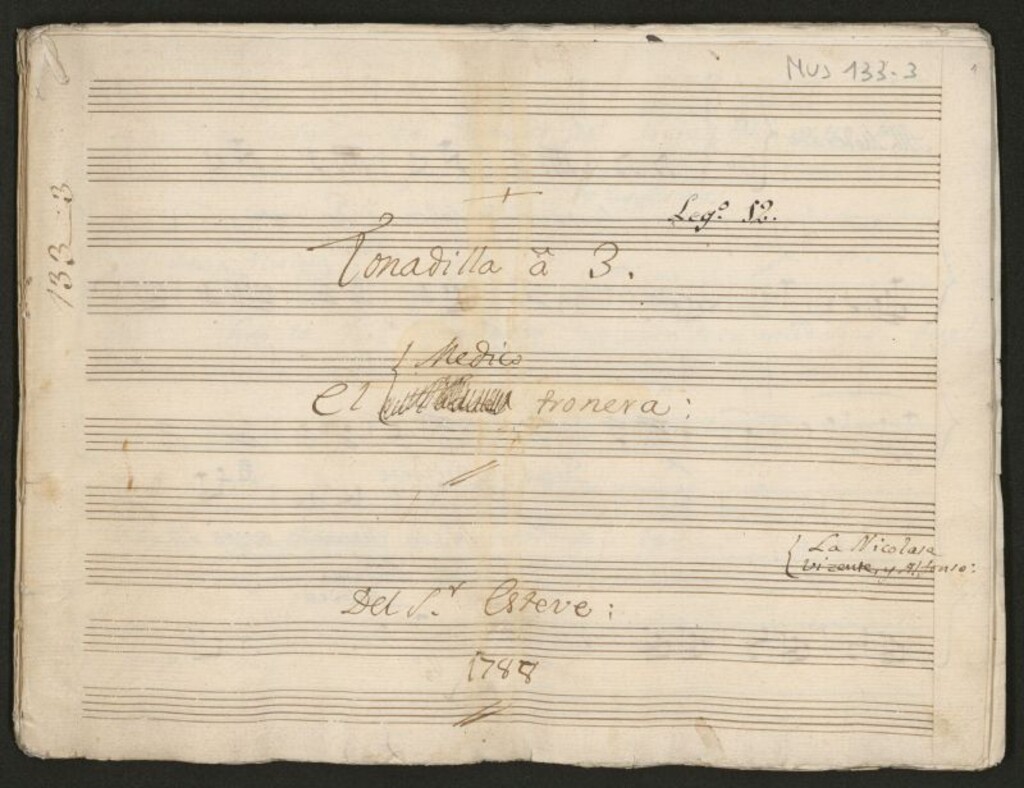 Mus 133-3
1
133-3
+
Leg.º 12.
Tonadilla â 3.
Medico
El tronera:
La Nicolasa
Vizente, y Alfonso:
Del S.r Esteve:
1788